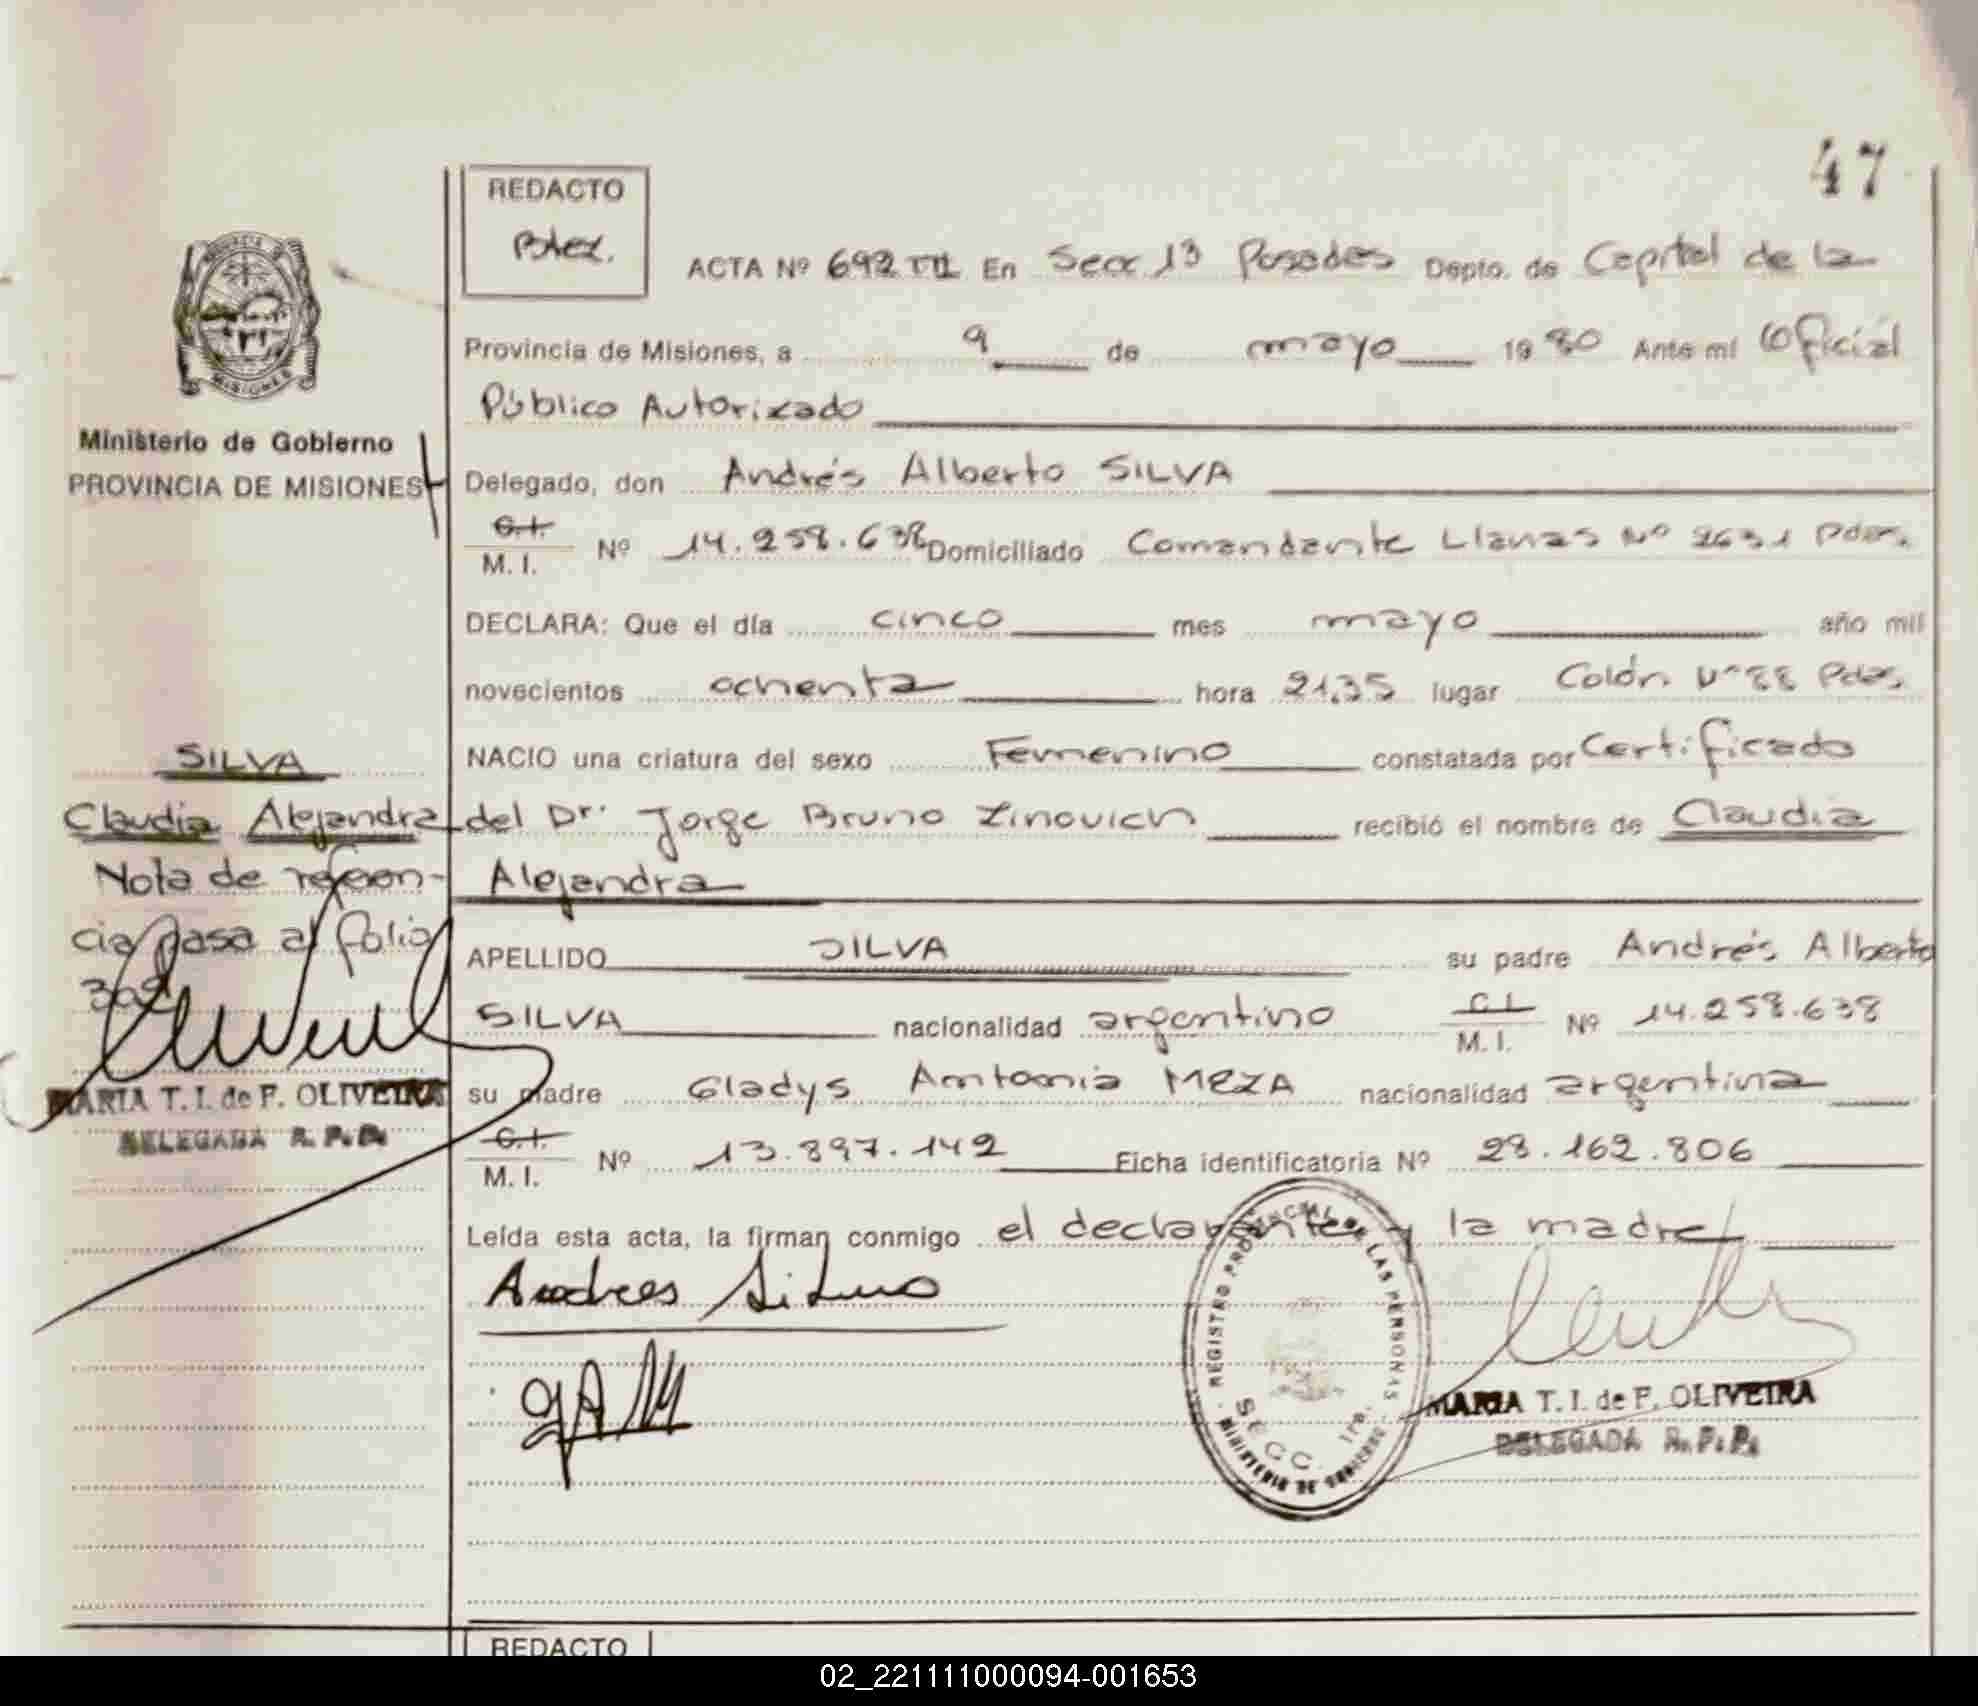 47
REDACTO
ACTA Nº 692 TII En Secc. 13 Posadas Depto. de Capital de la
Provincia de Misiones, a 9 de mayo 1980 Ante mi Oficial
Público Autorizado
Ministerio de Gobierno
PROVINCIA DE MISIONES
Delegado, don Andrés Alberto SILVA
C.I.
M. I. Nº 14.258.638 Domiciliado Comandante Llanas Nº 2631 Pdas.
DECLARA: Que el día cinco mes mayo año mil
novecientos ochenta hora 21,35 lugar Colón Nº 88 Pdas.
NACIO una criatura del sexo Femenino constatada por Certificado
del Dr. Jorge Bruno Zinovich recibió el nombre de Claudia
Alejandra
APELLIDO SILVA su padre Andrés Alberto
SILVA nacionalidad argentino C.I. M. I. Nº 14.258.638
su madre Gladys Antonia MEZA nacionalidad argentina
C.I.
M. I. Nº 13.897.142 Ficha identificatoria Nº 28.162.806
Leída esta acta, la firman conmigo el declarante y la madre
SILVA
Claudia Alejandra
Nota de referen-
cia pasa al folio
MARIA T. I. de F. OLIVEIRA
DELEGADA R. P. P.
Andres Silva
REGISTRO PROVINCIAL DE LAS PERSONAS
SECC. 1ra.
MINISTERIO DE GOBIERNO
MARIA T. I. de F. OLIVEIRA
DELEGADA R. P. P.
REDACTO
02_221111000094-001653